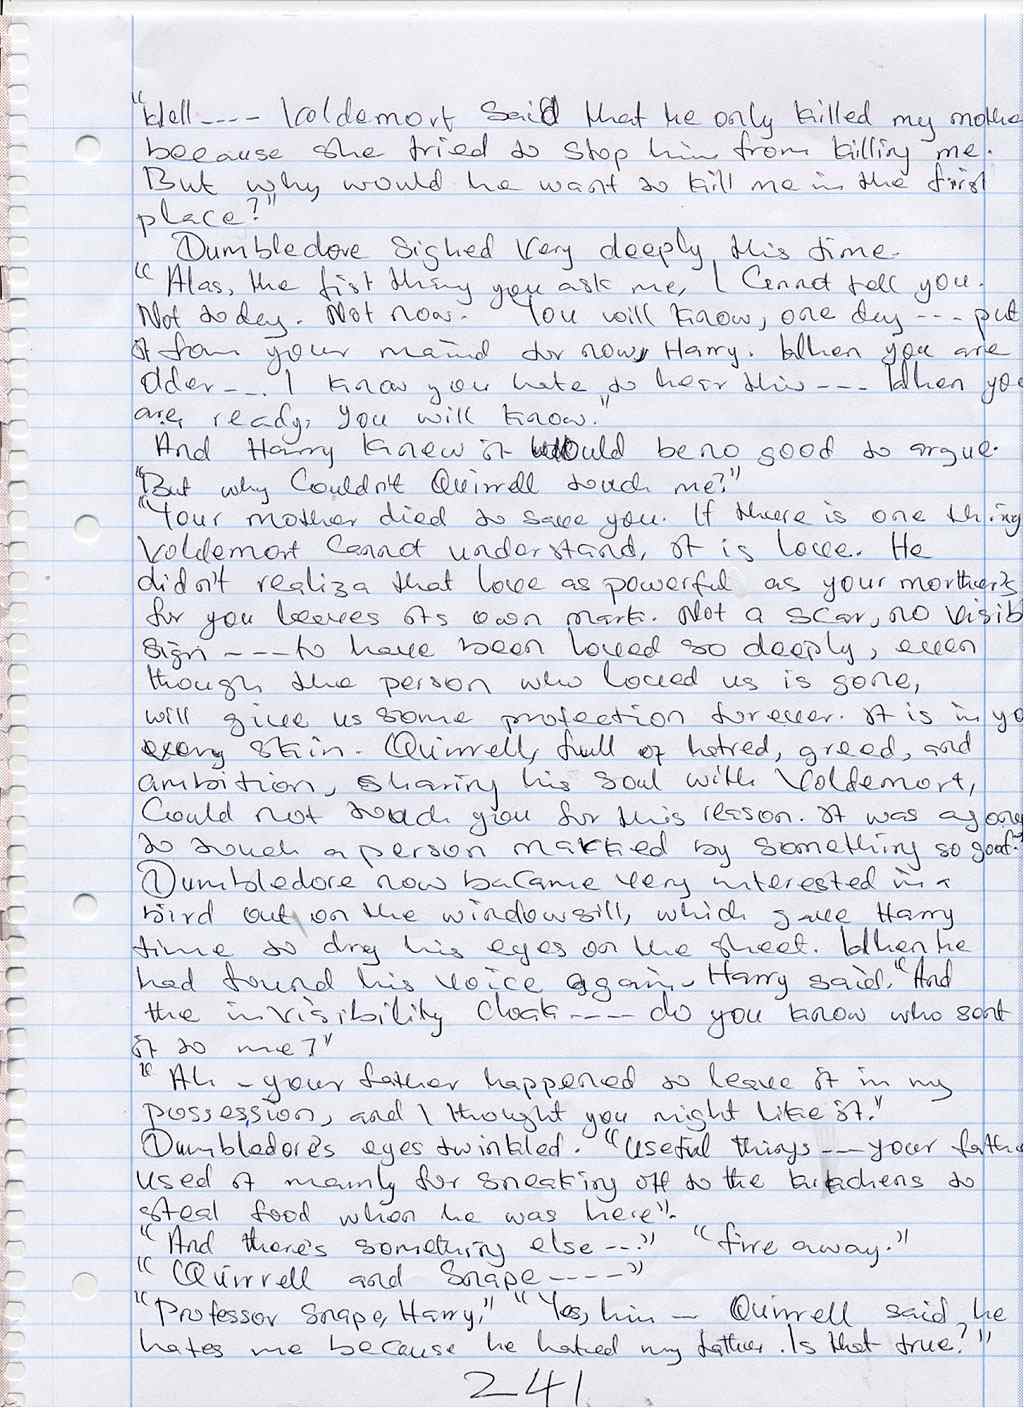 "Well---- Voldemort said that he only killed my mothe
because she tried to stop him from killing me.
But why would he want to kill me in the first
place?"
Dumbledore Sighed very deeply this time.
"Alas, the fist thing you ask me, I Cannot tell you.
Not today. Not now. You will know, one day --- put
it from your maind for now, Harry. When you are
Older--. I know you hate to hear this --- When you
are, ready, you will know."
And Harry knew it would be no good to argue.
"But why Couldn't Quirrell touch me?"
"Your mother died to save you. If there is one thing
Voldemort Cannot understand, it is love. He
didn't realiza that love as powerful as your morther's
for you leaves its own mark. Not a scar, no visib
sign ---- to have been loved so deeply, even
though the person who loved us is gone,
will give us some protection forever. It is in yo
very skin. Quirrell, full of hatred, greed, and
ambition, sharing his soul with Voldemort,
Could not touch you for this reason. It was agony
to touch a person marked by something so good."
Dumbledore now became very interested in a
bird out on the windowsill, which gave Harry
time to dry his eyes on the sheet. When he
had found his voice again, Harry said, "And
the invisibility Cloak ---- do you know who sent
it to me?"
"Ah - your father happened to leave it in my
possession, and I thought you might like it."
Dumbledore's eyes twinkled. "Useful things --- your fathe
used it mainly for sneaking off to the kitchens to
steal food when he was here".
"And there's something else ---" "fire away."
"Quirrell and Snape ----"
"Professor Snape, Harry." "Yes, him - Quirrell said he
hates me because he hated my father. Is that true?"
241